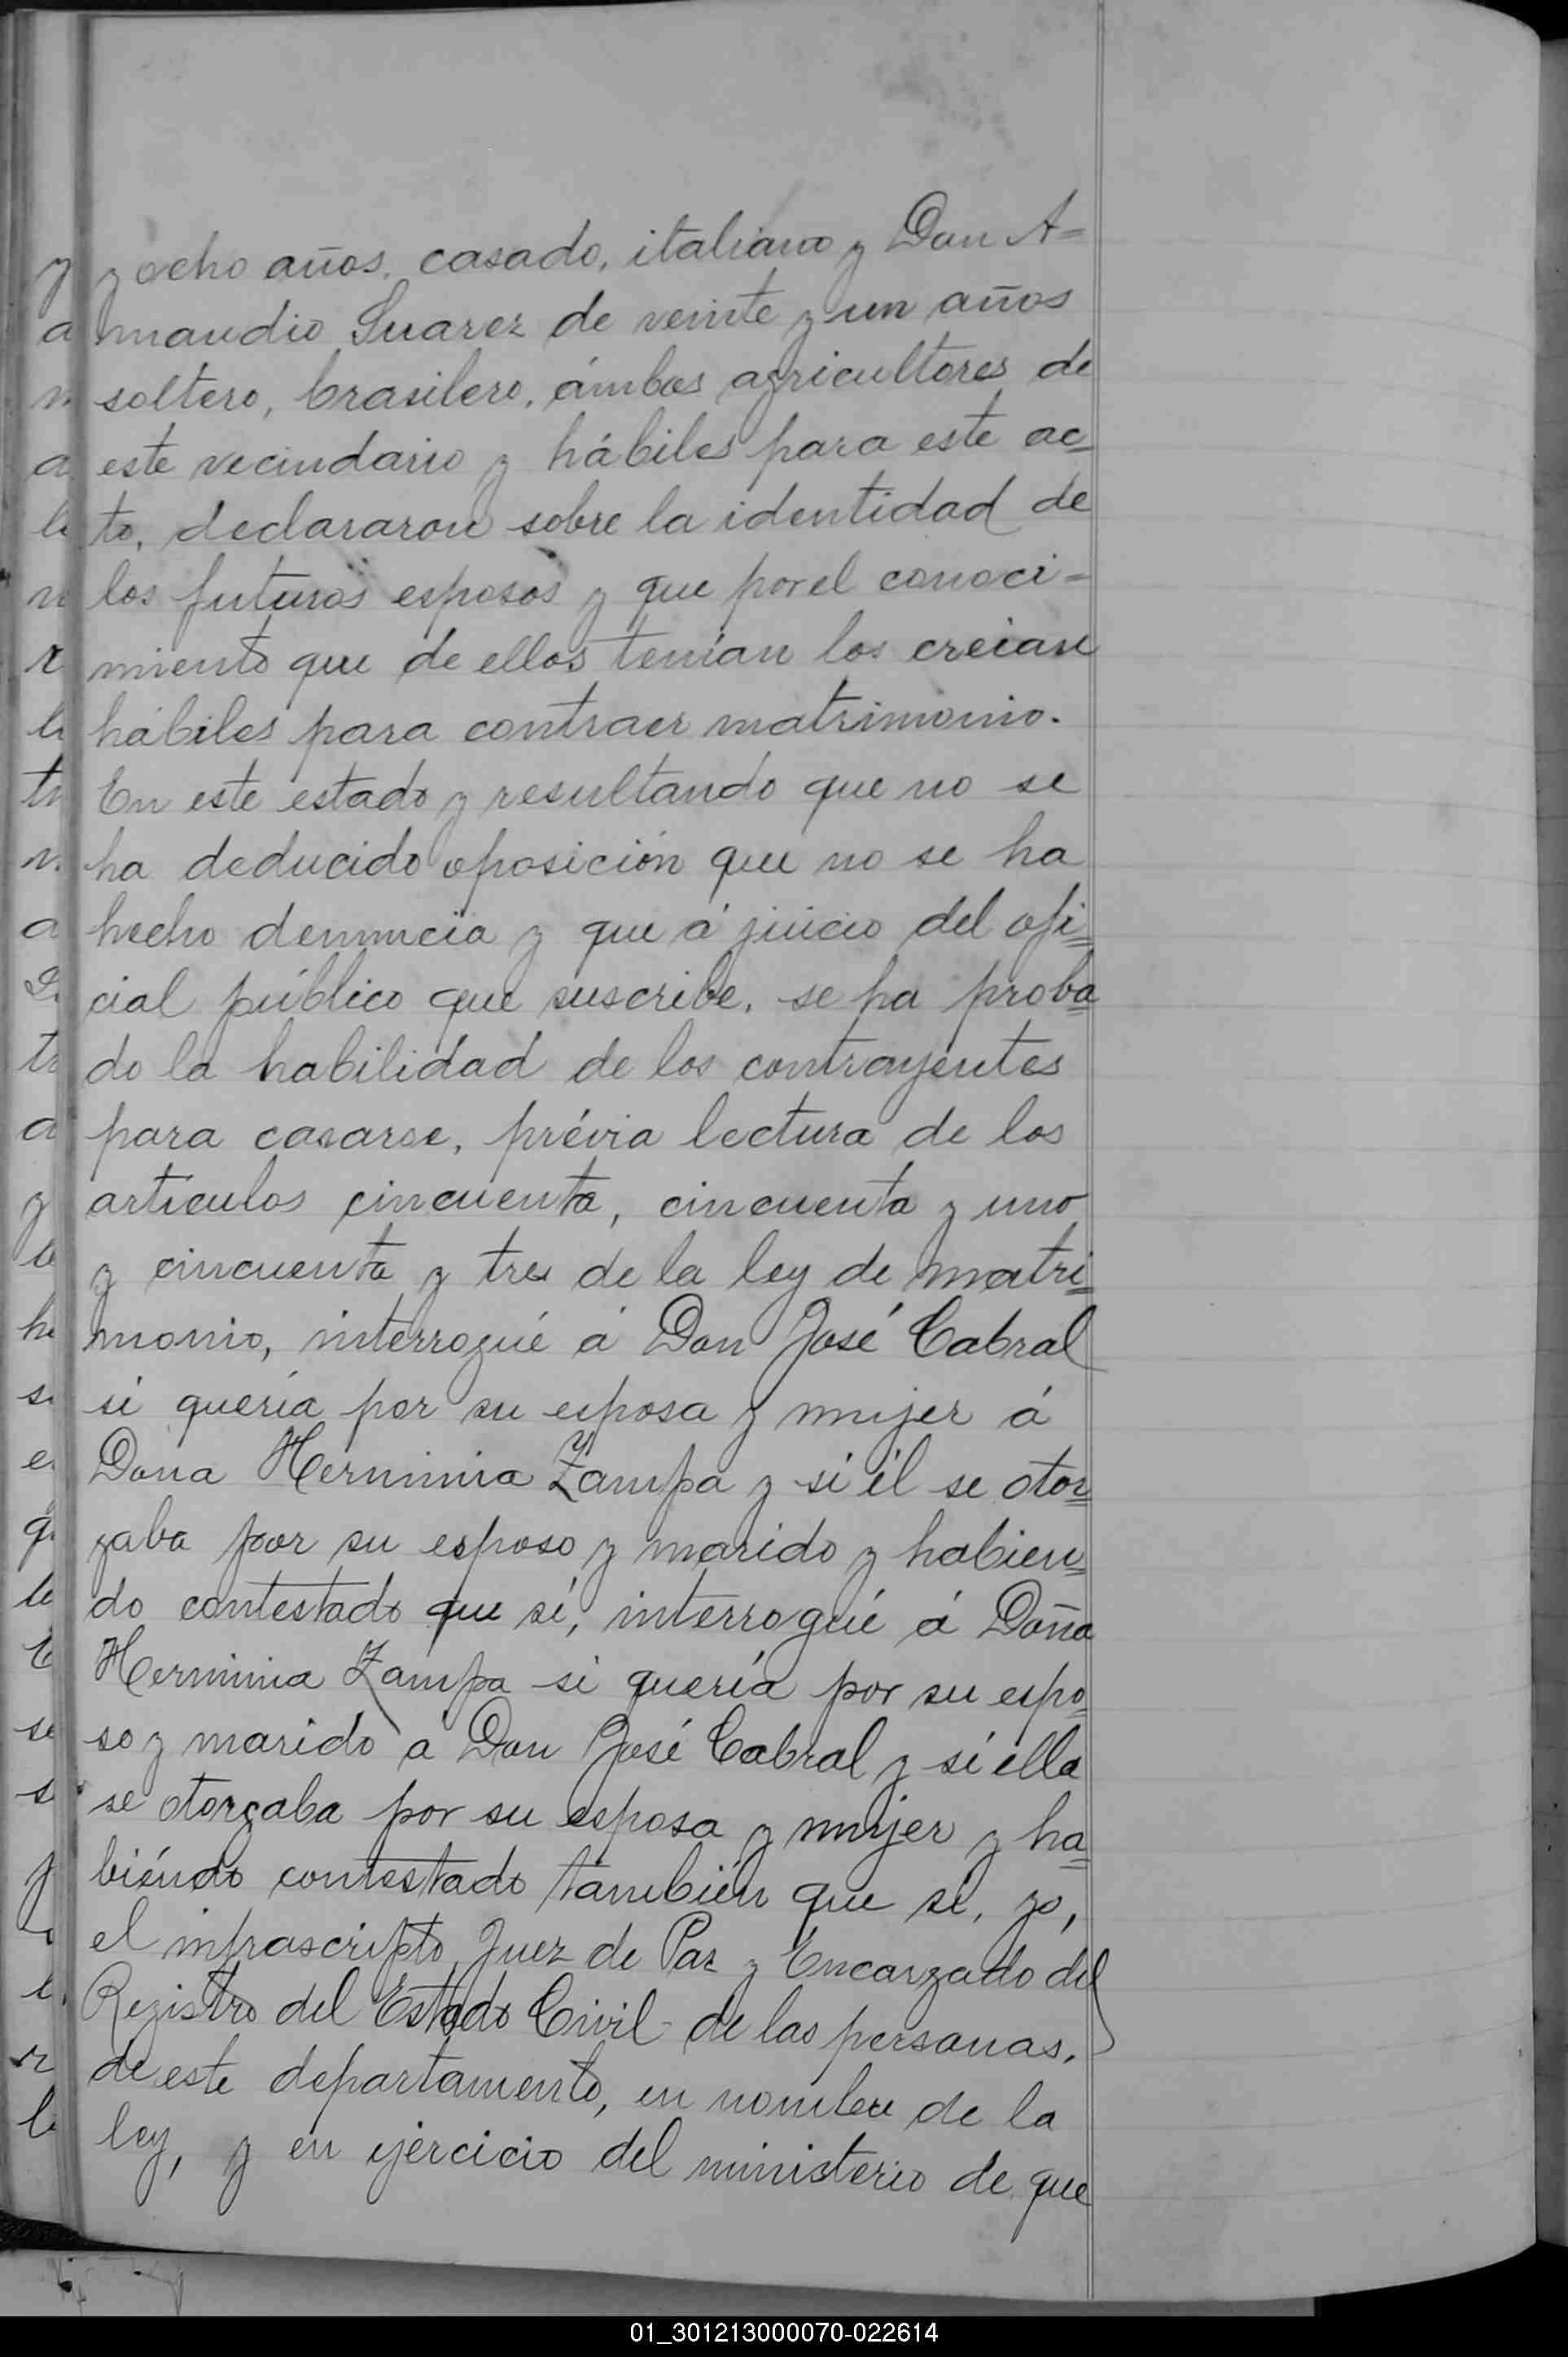 y ocho años, casado, italiano y Don A=
mandio Suarez de veinte y un años
soltero, brasilero, ámbos agricultores de
este vecindario y hábiles para este ac=
to, declararon sobre la identidad de
los futuros esposos y que por el conoci=
miento que de ellos tenían los creian
hábiles para contraer matrimonio.
En este estado y resultando que no se
ha deducido oposición que no se ha
hecho denuncia y que á juicio del ofi=
cial público que suscribe, se ha proba=
do la habilidad de los contrayentes
para casarse, prévia lectura de los
artículos cincuenta, cincuenta y uno
y cincuenta y tres de la ley de matri=
monio, interrogué á Don José Cabral
si quería por su esposa y mujer á
Dona Herminia Zampa y si él se otor=
gaba por su esposo y marido y habien=
do contestado que sí, interrogué á Doña
Herminia Zampa si quería por su espo=
so y marido á Don José Cabral y si ella
se otorgaba por su esposa y mujer y ha=
biéndo contestado también que sí, yo,
el infrascripto Juez de Paz y Encargado del
Registro del Estado Civil de las personas,
de este departamento, en nombre de la
ley, y en ejercicio del ministerio de que
01_301213000070-022614